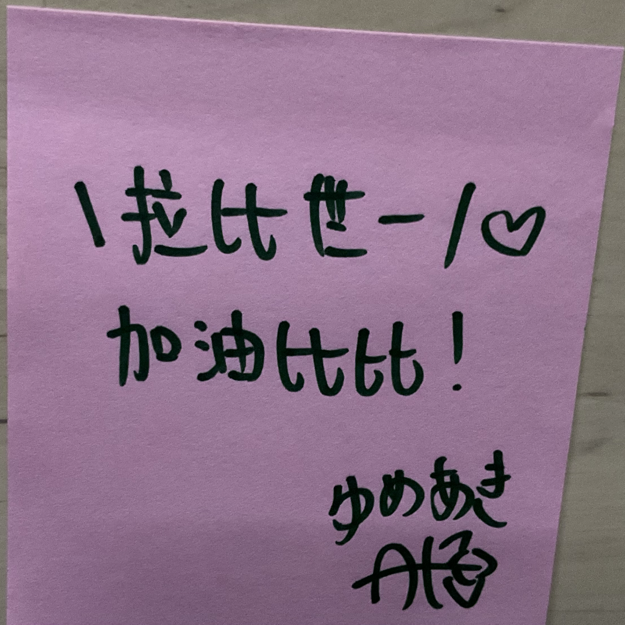 \拉比世一/♡
加油比比！
ゆめあき